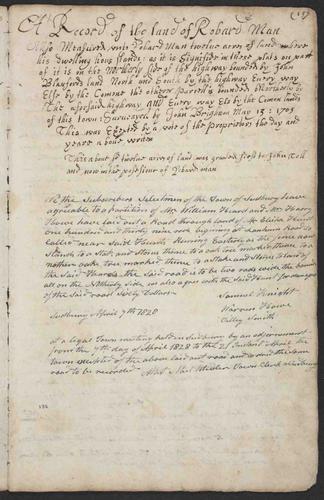 A Record of the land of Robard Man
Also Measured unto Robard Man twelve acres of land where
his Dwelling hous stands: as it is
of it is on the Northerly side of the highway bounded by John
Blanfords land North and South by the highway Every way
Else by the Comons the others parcell is bounded Northerly by
The aforsaid highway and Every way Els by the Comon lands
of this town: Surveayed by John Brigham May 13: 1705
This was by a vote of the Proprietors the day and
yeare a bove writen
This above sd twelve acres of land was granted first to John Toll
and now in the possesion of Robard man
We the Subscribers Selectmen of the Town of Sudbury have
agreeable to a petition of Mr William Heard and Mr Harry
Howe have laid out a Road through land of
one hundred and thirty nine rods begining at road So
Called near Said Runing Easterly as the line now
Stands to a Stake and Stones thence to a oak marked thence to a
nother oak tree marked thence to a Stake and Stones Stand of
the Said Heards the Said road is to be two rods wide the land is
all on the Notherly Side, we also agree with the Said for damages
of the Said road Sixty Dollars
Samuel Knight
Sudbury April 7th 1828
Warren Howe
Tilly Smith
at a legal Town meeting held in Sudbury by an adjournment
from the 7th day of April 1828 to the 21 Instant April the
town excepted of the above laid out road and voted the same
road to be recorded Town Clerk